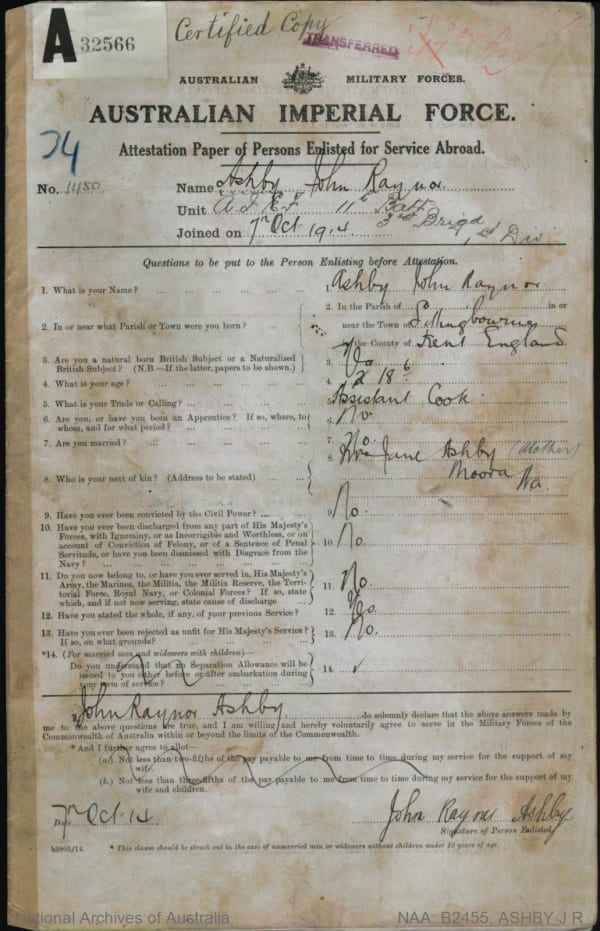 A 32566
Certified Copy
TRANSFERRED
AUSTRALIAN MILITARY FORCES.
AUSTRALIAN IMPERIAL FORCE.
Attestation Paper of Persons Enlisted for Service Abroad.
74
No. 1480 Name Ashby John Raynor
Unit A.I.E.F. 11th Batt 3rd Brigd 1st Div
Joined on 7th Oct 1914.
Questions to be put to the Person Enlisting before Attestation.
1. What is your Name? ... 1. Ashby John Raynor
2. In or near what Parish or Town were you born? ... 2. In the Parish of in or
near the Town of Sittingbourne
the County of Kent England
3. Are you a natural born British Subject or a Naturalised
British Subject? (N.B.—If the latter, papers to be shown.) 3.
4. What is your age? ... 4. 18
5. What is your Trade or Calling? ... 5. Assistant Cook
6. Are you, or have you been an Apprentice? If so, where, to
whom, and for what period? ... 6. No.
7. Are you married? ... 7. No.
8. Who is your next of kin? (Address to be stated) ... 8. Jane Ashby (Mother)
Moora Wa
9. Have you ever been convicted by the Civil Power? ... 9. No.
10. Have you ever been discharged from any part of His Majesty's
Forces, with Ignominy, or as Incorrigible and Worthless, or on
account of Conviction of Felony, or of a Sentence of Penal
Servitude, or have you been dismissed with Disgrace from the
Navy? ... 10. No.
11. Do you now belong to, or have you ever served in, His Majesty's
Army, the Marines, the Militia, the Militia Reserve, the Terri-
torial Force, Royal Navy, or Colonial Forces? If so, state
which, and if not now serving, state cause of discharge ... 11. No
12. Have you stated the whole, if any, of your previous Service? 12. Yes.
13. Have you ever been rejected as unfit for His Majesty's Service?
If so, on what grounds? ... 13. No.
*14. (For married men and widowers with children)—
Do you understand that no Separation Allowance will be
issued to you either before or after embarkation during
your term of service? ... 14.
I, John Raynor Ashby do solemnly declare that the above answers made by
me to the above questions are true, and I am willing and hereby voluntarily agree to serve in the Military Forces of the
Commonwealth of Australia within or beyond the limits of the Commonwealth.
* And I further agree to allot—
(a.) Not less than two-fifths of the pay payable to me from time to time during my service for the support of my
wife.
(b.) Not less than three-fifths of the pay payable to me from time to time during my service for the support of my
wife and children.
Date 7th Oct. 14 John Raynor Ashby
Signature of Person Enlisted.
b3805/14. * This clause should be struck out in the case of unmarried men or widowers without children under 18 years of age.
National Archives of Australia NAA: B2455, ASHBY J R